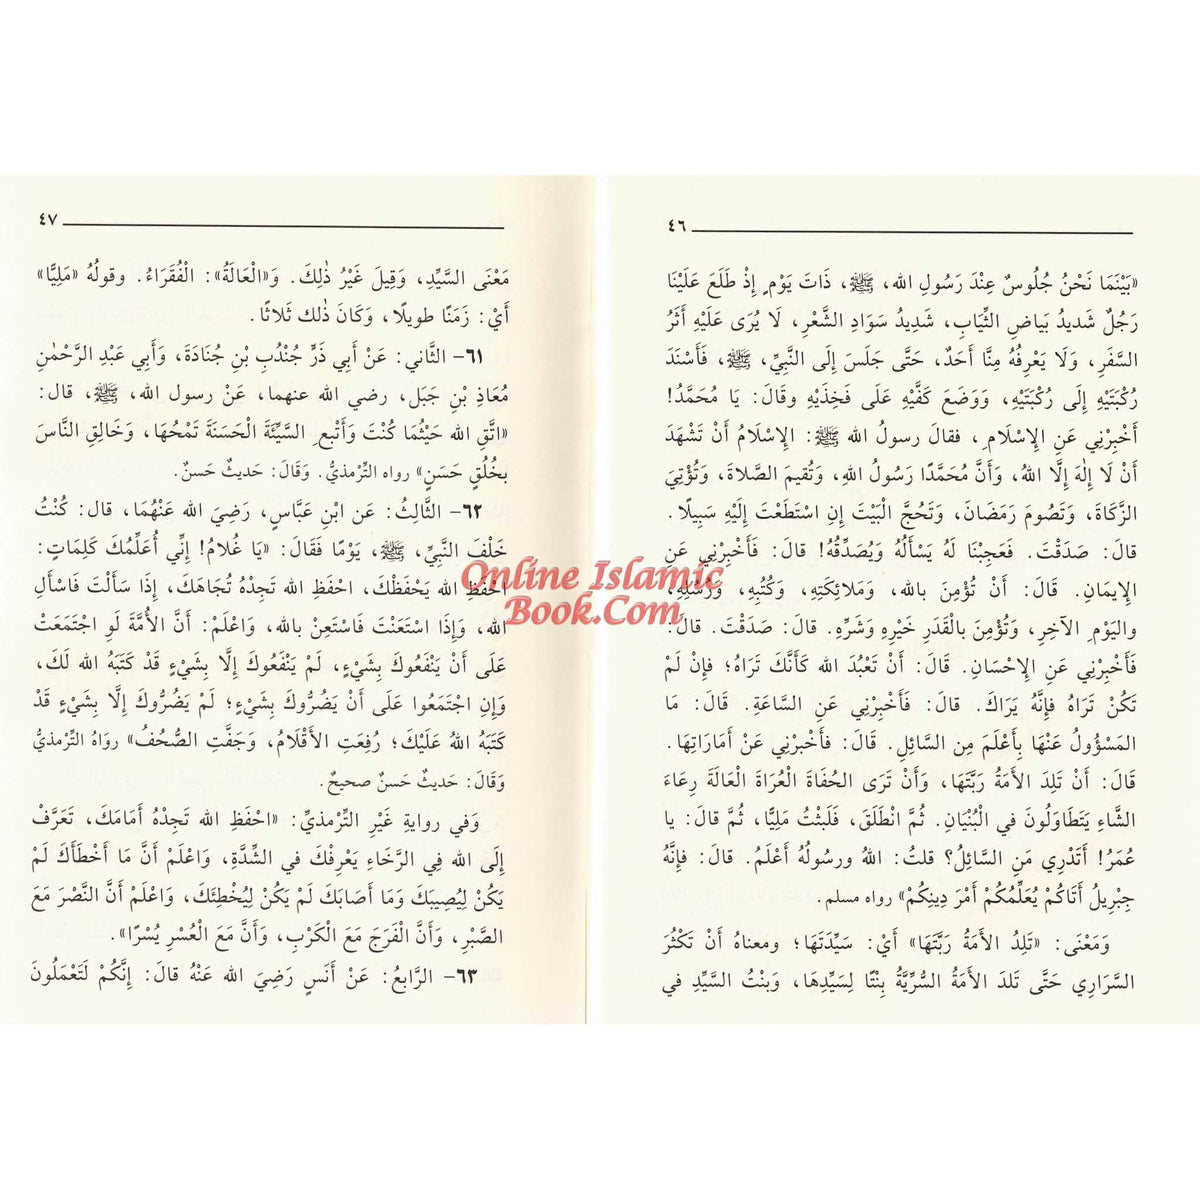 ٤٦
«بَيْنَمَا نَحْنُ جُلُوسٌ عِنْدَ رَسُولِ الله، ﷺ، ذَاتَ يَوْمٍ إِذْ طَلَعَ عَلَيْنَا
رَجُلٌ شَديدُ بَيَاضِ الثِّيَابِ، شَدِيدُ سَوَادِ الشَّعْرِ، لَا يُرَى عَلَيْهِ أَثَرُ
السَّفَرِ، وَلَا يَعْرِفُهُ مِنَّا أَحَدٌ، حَتَّى جَلَسَ إِلَى النَّبِيِّ، ﷺ، فَأَسْنَدَ
رُكْبَتَيْهِ إِلَى رُكْبَتَيْهِ، وَوَضَعَ كَفَّيْهِ عَلَى فَخِذَيْهِ وقَالَ: يَا مُحَمَّدُ!
أَخْبِرْنِي عَنِ الإِسْلَامِ، فقالَ رسولُ الله ﷺ: الإِسْلَامُ أَنْ تَشْهَدَ
أَنْ لَا إِلٰهَ إِلَّا اللهُ، وَأَنَّ مُحَمَّدًا رَسُولُ اللهِ، وَتُقيمَ الصَّلاةَ، وَتُؤْتِيَ
الزَّكَاةَ، وَتَصُومَ رَمَضَانَ، وَتَحُجَّ الْبَيْتَ إِنِ اسْتَطَعْتَ إِلَيْهِ سَبِيلًا.
قالَ: صَدَقْتَ. فَعَجِبْنَا لَهُ يَسْأَلُهُ وَيُصَدِّقُهُ! قالَ: فَأَخْبِرْنِي عَنِ
الإِيمَانِ. قَالَ: أَنْ تُؤْمِنَ بالله، وَمَلائِكَتِهِ، وَكُتُبِهِ، وَرُسُلِهِ،
واليَوْمِ الآخِرِ، وَتُؤْمِنَ بالْقَدَرِ خَيْرِهِ وَشَرِّهِ. قالَ: صَدَقْتَ. قالَ:
فَأَخْبِرْنِي عَنِ الإِحْسَانِ. قَالَ: أَنْ تَعْبُدَ الله كَأَنَّكَ تَرَاهُ؛ فإِنْ لَمْ
تَكُنْ تَرَاهُ فإِنَّهُ يَرَاكَ. قالَ: فَأَخْبِرْنِي عَنِ السَّاعَةِ. قَالَ: مَا
المَسْؤُولُ عَنْهَا بِأَعْلَمَ مِنَ السَّائِلِ. قَالَ: فأَخْبرْنِي عَنْ أَمَارَاتِهَا.
قَالَ: أَنْ تَلِدَ الأَمَةُ رَبَّتَهَا، وَأَنْ تَرَى الحُفَاةَ الْعُرَاةَ الْعَالَةَ رِعَاءَ
الشَّاءِ يَتَطَاوَلُونَ في الْبُنْيَانِ. ثُمَّ انْطَلَقَ، فَلَبِثْتُ مَلِيًّا، ثُمَّ قالَ: يا
عُمَرُ! أَتَدْرِي مَنِ السَّائِلُ؟ قلتُ: اللهُ ورسُولُهُ أَعْلَمُ. قالَ: فإِنَّهُ
جِبْرِيلُ أَتَاكُمْ يُعَلِّمُكُمْ أَمْرَ دِينِكُمْ» رواه مسلم.
وَمَعْنَى: «تَلِدُ الأَمَةُ رَبَّتَهَا» أَيْ: سَيِّدَتَهَا؛ ومعناهُ أَنْ تَكْثُرَ
السَّرَارِي حَتَّى تَلدَ الأَمَةُ السُّرِّيَّةُ بِنْتًا لِسَيِّدِها، وَبنْتُ السَّيِّدِ في
٤٧
مَعْنَى السَّيِّدِ، وَقِيلَ غَيْرُ ذٰلِكَ. وَ«الْعَالَةُ»: الْفُقَرَاءُ. وقولُهُ «مَلِيًّا»
أَيْ: زَمَنًا طويلًا، وَكَانَ ذٰلك ثَلاثًا.
٦١- الثَّاني: عَنْ أَبي ذَرٍّ جُنْدُبِ بْنِ جُنَادَةَ، وَأَبي عَبْدِ الرَّحْمٰنِ
مُعَاذِ بْنِ جَبَلٍ، رضي الله عنهما، عَنْ رسول الله، ﷺ، قال:
«اتَّقِ الله حَيْثُمَا كُنْتَ وَأَتْبعِ السَّيِّئَةَ الْحَسَنَةَ تَمْحُهَا، وَخَالِقِ النَّاسَ
بخُلُقٍ حَسَنٍ» رواه التِّرْمذيُّ. وَقَالَ: حَديثٌ حَسنٌ.
٦٢- الثَّالِثُ: عَن ابْنِ عَبَّاسٍ، رَضِيَ الله عَنْهُمَا، قال: كُنْتُ
خَلْفَ النَّبِيِّ، ﷺ، يَوْمًا فَقَالَ: «يَا غُلامُ! إِنِّي أُعَلِّمُكَ كَلِمَاتٍ:
احْفَظِ الله يَحْفَظْكَ، احْفَظِ الله تَجِدْهُ تُجَاهَكَ، إِذَا سَأَلْتَ فَاسْأَلِ
الله، وَإِذَا اسْتَعَنْتَ فَاسْتَعِنْ بالله، وَاعْلَمْ: أَنَّ الأُمَّةَ لَوِ اجْتَمَعَتْ
عَلَى أَنْ يَنْفَعُوكَ بِشَيْءٍ، لَمْ يَنْفَعُوكَ إِلَّا بِشَيْءٍ قَدْ كَتَبَهُ الله لَكَ،
وَإِنِ اجْتَمَعُوا عَلَى أَنْ يَضُرُّوكَ بِشَيْءٍ؛ لَمْ يَضُرُّوكَ إِلَّا بِشَيْءٍ قَدْ
كَتَبَهُ اللهُ عَلَيْكَ؛ رُفِعَتِ الأَقْلَامُ، وَجَفَّتِ الصُّحُفُ» رَوَاهُ التِّرْمذيُّ
وَقَالَ: حَديثٌ حَسنٌ صحيحٌ.
وَفي روايةِ غَيْرِ التِّرْمذيِّ: «احْفَظِ الله تَجِدْهُ أَمَامَكَ، تَعَرَّفْ
إِلَى الله فِي الرَّخَاءِ يَعْرِفْكَ في الشِّدَّةِ، وَاعْلَمْ أَنَّ مَا أَخْطَأَكَ لَمْ
يَكُنْ لِيُصِيبَكَ وَمَا أَصَابَكَ لَمْ يَكُنْ لِيُخْطِئَكَ، وَاعْلَمْ أَنَّ النَّصْرَ مَعَ
الصَّبْرِ، وَأَنَّ الْفَرَجَ مَعَ الْكَرْبِ، وَأَنَّ مَعَ الْعُسْرِ يُسْرًا».
٦٣- الرَّابعُ: عَنْ أَنَسٍ رَضِيَ الله عَنْهُ قالَ: إِنَّكُمْ لَتَعْمَلُونَ
Online Islamic
Book.Com